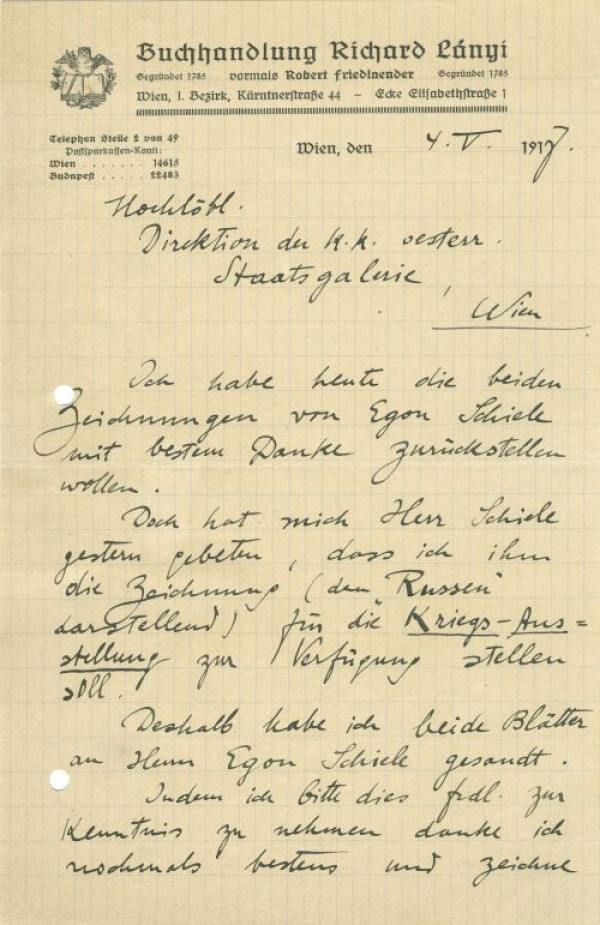 Buchhandlung Richard Lányi
Gegründet 1785 vormals Robert Friedlaender Gegründet 1785
Wien, I. Bezirk, Kärntnerstraße 44 – Ecke Elisabethstraße 1
Telephon Stelle 2 von 49
Postsparkassen-Konti:
Wien . . . . . . . 14615
Budapest . . . . . 22483
Wien, den 4. V. 1917.
Hochlöbl.
Direktion der k. k. oesterr.
Staatsgalerie,
Wien
Ich habe heute die beiden
Zeichnungen von Egon Schiele
mit bestem Danke zurückstellen
wollen.
Doch hat mich Herr Schiele
gestern gebeten, dass ich ihm
die Zeichnung (den „Russen"
darstellend) für die Kriegs-Aus=
stellung zur Verfügung stellen
soll.
Deshalb habe ich beide Blätter
an Herrn Egon Schiele gesandt.
Indem ich bitte dies frdl. zur
Kenntnis zu nehmen danke ich
nochmals bestens und zeichne